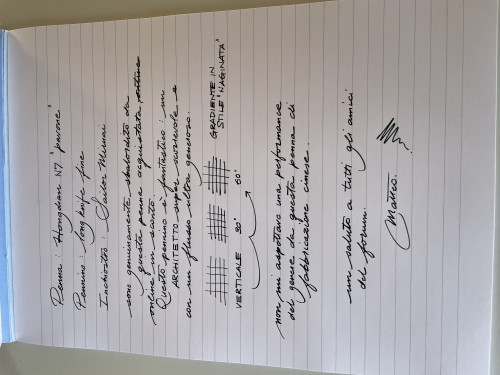 Penna: Hongdian N7 "pavone"
Pennino: long knife fine
Inchiostro: Sailor
sono genuinamente sbalordito da
questa penna acquistata
online in sconto.
Questo pennino è fantastico: un
ARCHITETTO super scorrevole e
con un flusso ultra generoso.
GRADIENTE IN
STILE "NAGINATA"
VERTICALE 30° 60°
non mi aspettavo una performance
del genere da questa penna di
fabbricazione cinese.
un saluto a tutti gli amici
del forum.
Matteo.